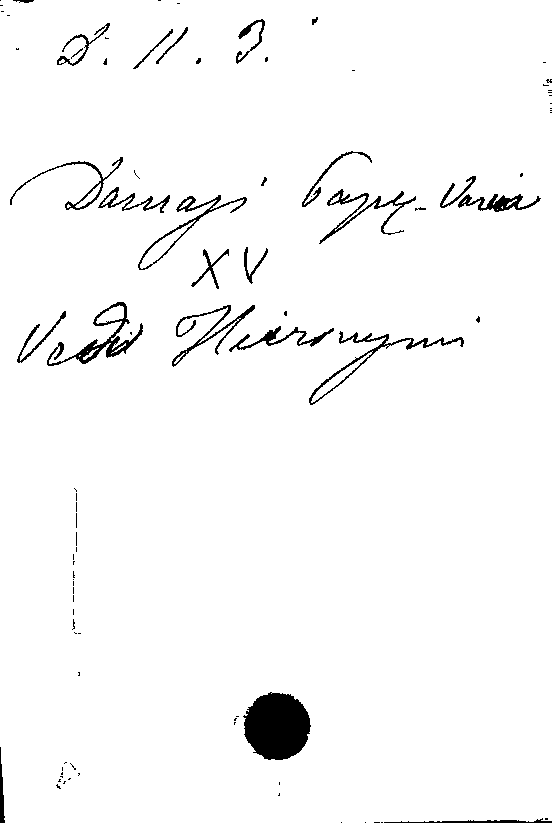 D. 11. 3.
Damasi Papȩ - Varia
XV
Vedi Hieronymi